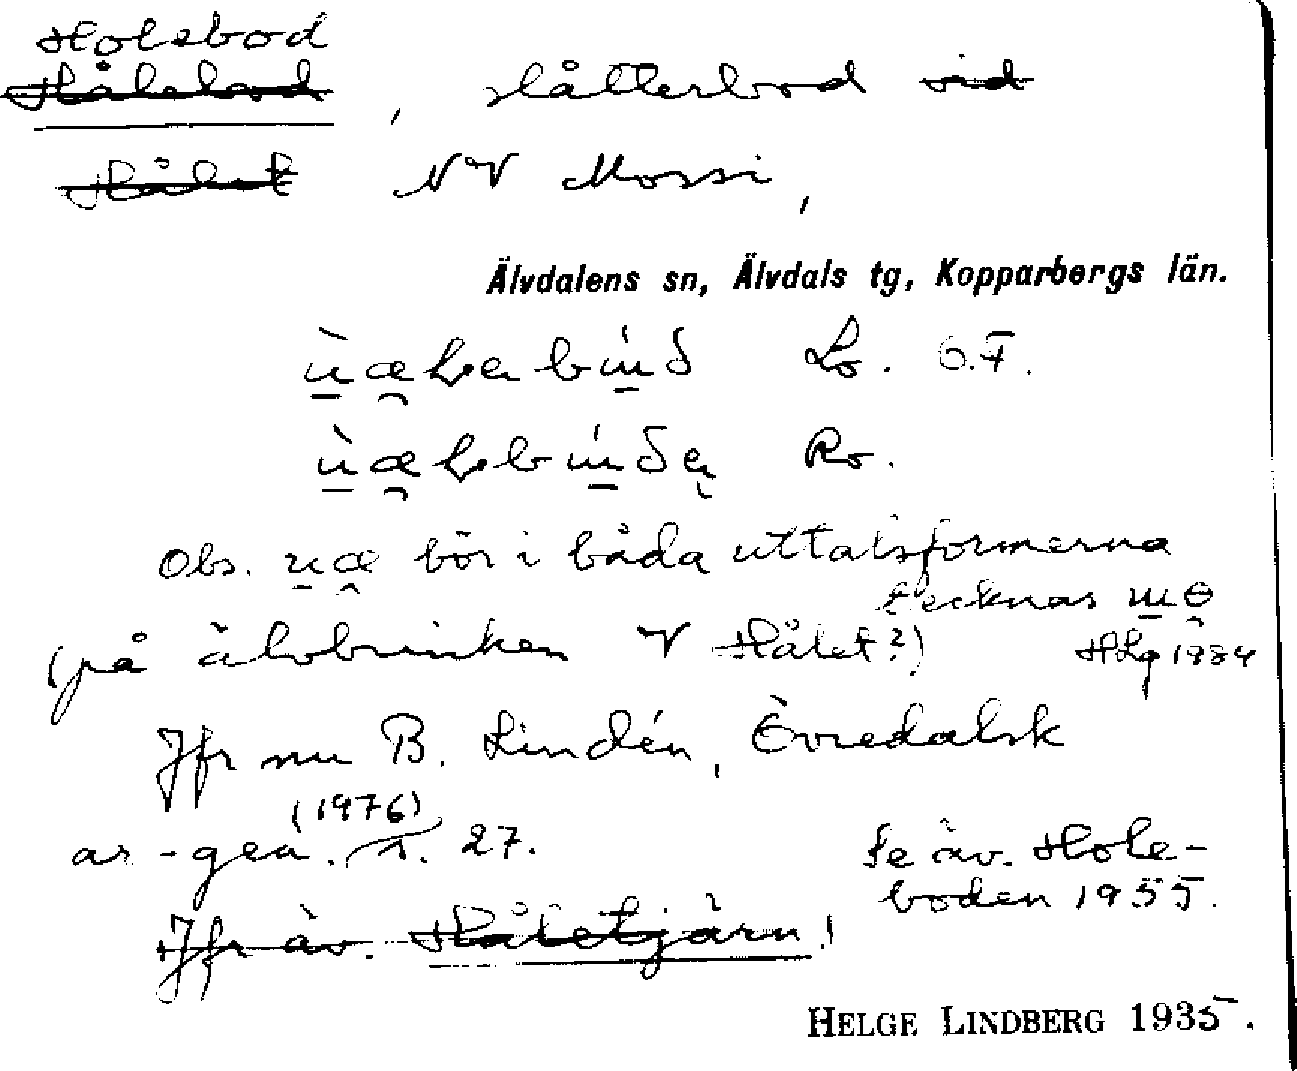 Holsbod
Hålsbod, slåtterbod vid
Hålet NV Mossi,
Älvdalens sn, Älvdals tg, Kopparbergs län.
Lo. G.F.
Ro.
Obs. bör i båda uttalsformerna
tecknas
(på älvbrinken V Hålet?) HLg 1984
Jfr nu B. Lindén, Evredalsk
(1976)
as-gen. s. 27. Se äv. Hole-
boden 1955.
Jfr äv. Håletjärn!
HELGE LINDBERG 1935.